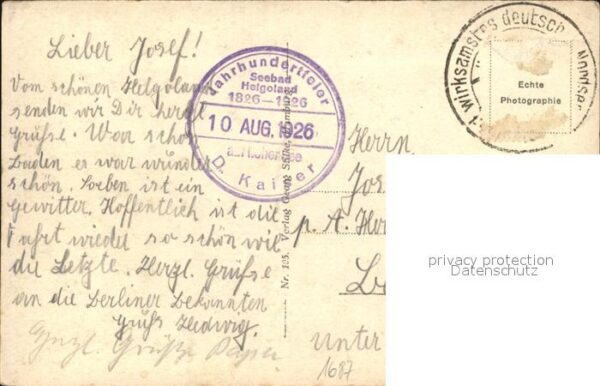 Lieber Josef!
Vom schönen Helgoland
senden wir Dir herzl.
Grüße. War schon
baden es war wunder
schön. Soeben ist ein
Gewitter. Hoffentlich ist die
Fahrt wieder so schön wie
die Letzte. Herzl. Grüße
an die Berliner Bekannten
Gruß Hedwig.
Herzl. Grüße Papa
Jahrhundertfeier
Seebad
Helgoland
1826-1926
10 AUG. 1926
D. Kaiser
Nr. 105. Verlag Georg Stilke, Hamburg
wirksamstes deutsch
Nordsee
Echte
Photographie
Herrn
Jos
p. A. Her
Unter
1687
privacy protection
Datenschutz